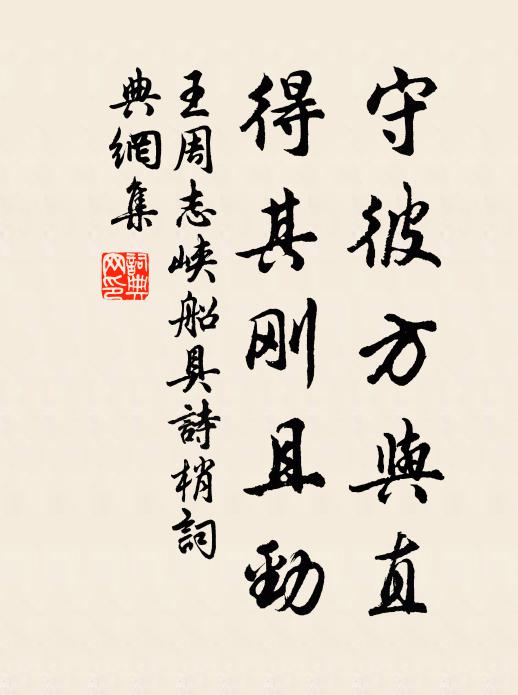 守彼方與直
得其刚且勁
王周志峡船具詩梢詞
典網集
詞典网印